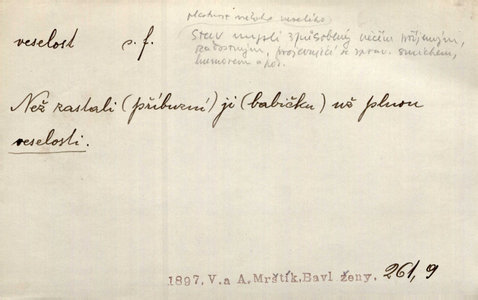 vlastnost něčeho veselého;
veselost s. f.
stav mysli způsobený něčím příjemným,
radostným, projevující se zprav. smíchem,
humorem a pod.
Než zastali (příbuzní) ji (babičku) už plnou
veselosti.
1897. V. a A. Mrštík. Bavl ženy. 261, 9